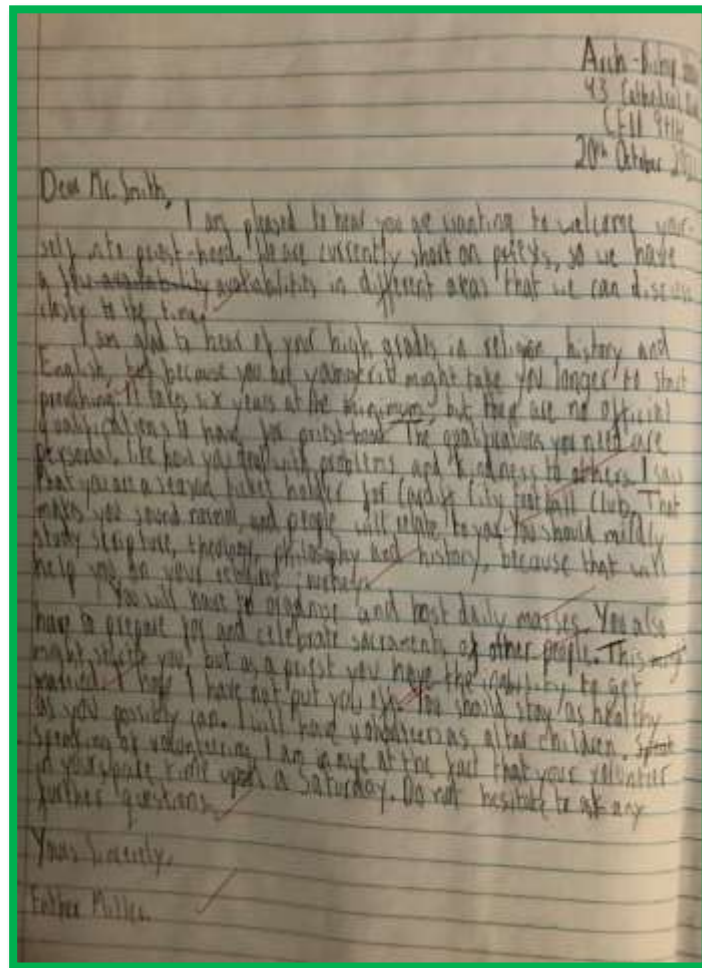 Arch-Bishop
43 Cathedral Rd
CF11 9HH
20th October
Dear Mr. Smith,
I am pleased to hear you are wanting to welcome your-
self into priest-hood. We are currently short on so we have
a few availability availabilities in different areas that we can discuss
to the time.
I am glad to hear of your high grades in religion, history and
English, but because you are might take you longer to start
preaching. It takes six years at the minimum, but there are no official
qualifications to have for priest-hood. The qualifications you need are
personal, like how you deal with problems and kindness to others. I saw
that you are a season ticket holder for Cardiff City Football Club. That
makes you sound normal, and people will relate to you. You should mildly
study scripture, theology, philosophy and history, because that will
help you on your
You will have to organise and host daily masses. You also
have to prepare for and celebrate sacraments of other people. This
might you, but as a priest you have the inability to get
married. I hope I have not put you off. You should stay as healthy
as you possibly can. I will have volunteers as altar children.
of volunteering, I am in awe at the fact that your volunteer
in your spare time upon a Saturday. Do not hesitate to ask any
further questions.
Yours Sincerely,
Father Miller.